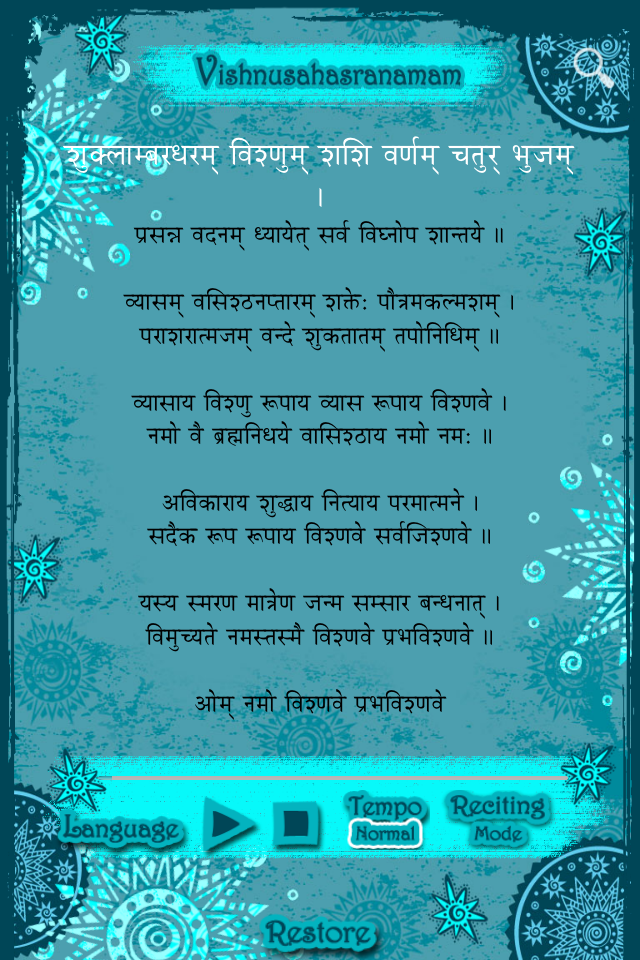 Vishnusahasranamam
शुक्लाम्बरधरम् विश्णुम् शशि वर्णम् चतुर् भुजम्
।
प्रसन्न वदनम् ध्यायेत् सर्व विघ्नोप शान्तये ॥
व्यासम् वसिश्ठनप्तारम् शक्तेः पौत्रमकल्मशम् ।
पराशरात्मजम् वन्दे शुकतातम् तपोनिधिम् ॥
व्यासाय विश्णु रूपाय व्यास रूपाय विश्णवे ।
नमो वै ब्रह्मनिधये वासिश्ठाय नमो नमः ॥
अविकाराय शुद्धाय नित्याय परमात्मने ।
सदैक रूप रूपाय विश्णवे सर्वजिश्णवे ॥
यस्य स्मरण मात्रेण जन्म सम्सार बन्धनात् ।
विमुच्यते नमस्तस्मै विश्णवे प्रभविश्णवे ॥
ओम् नमो विश्णवे प्रभविश्णवे
Language
Tempo
Normal
Reciting
Mode
Restore